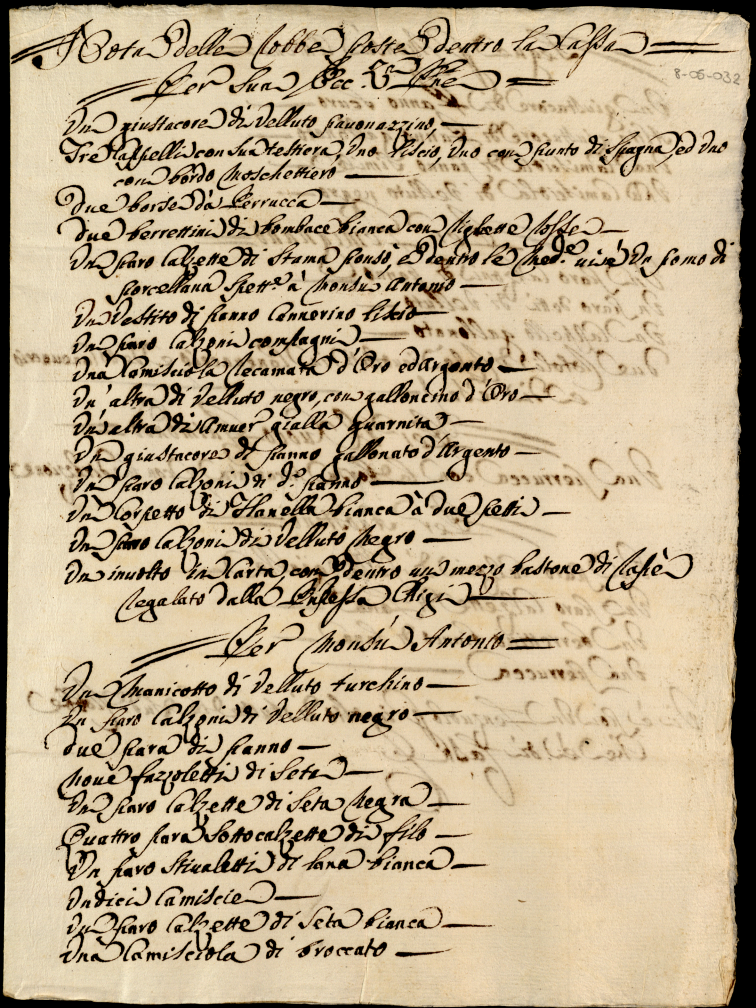 Nota delle Robbe poste dentro la Cassa
8-06-032
Per Sua Ecc.za Pne
Un giustacore di Velluto pavonazzino,
Tre Cappelli con sua testiera, Uno Liscio, Uno con punto di Spagna, ed Uno
con bordo Moschettiero
due borse da Perrucca
due berrettini di bombace bianca con Righette Rosse
Un paro Calzette di Stama ponsò, e dentro le Med.e vi sé Un pomo di
porcellana Spett.e à Monsù Antonio
Un Vestito di panno Cannerino liscio
Un paro Calzoni compagni
Una Camisciola Recamata d'Oro ed Argento
Un' altra di Velluto negro, con galloncino d'Oro
Un' altra di Amuer gialla guarnita
Un giustacore di panno gallonato d'Argento
Un paro Calzoni di d.o panno
Un Corpetto di Flanella bianca à due petti
Un paro Calzoni di Velluto Negro
Un involto in Carta, con dentro un mezzo bastone di Cafè
Regalato dalla Pnpessa Chigi
Per Monsù Antonio
Un Manicotto di Velluto turchino
Un paro Calzoni di Velluto negro
due para di panno
Nove fazzoletti di Seta
Un paro Calzette di Seta Negra
Quattro para Sottocalzette di filo
Un paro Stivaletti di lana bianca
Undici Camiscie
Un paro Calzette di Seta bianca
Una Camisciola di broccato